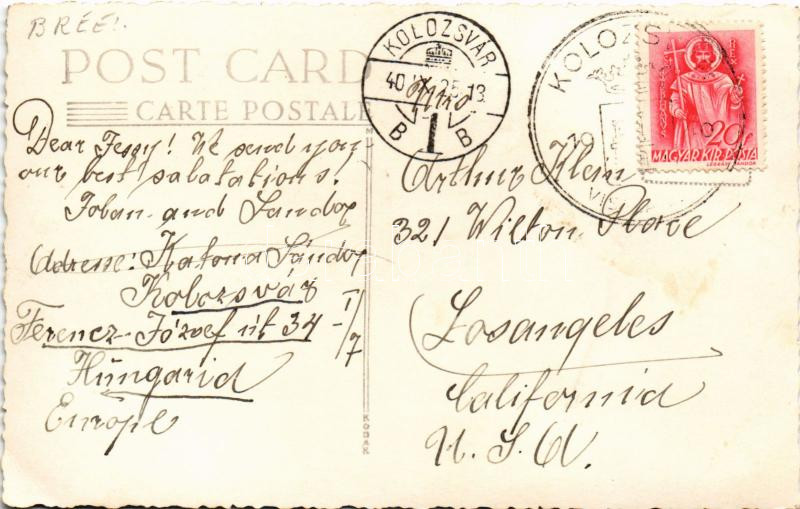 BRÉE!.
POST CARD
CARTE POSTALE
Dear Feszy! We send you
our best salatations!
Joban and Sandor
Adresse: Katona Sándor
Kolozsvár
Ferencz József út 34 I/7
Hungaria
Europe
KODAK
KOLOZSVÁR
40 25 13
B 1 B
KOLOZS
19
REX
20f
MAGYAR KIR. POSTA
Arthur Klein
321 Wilton Place
Losangeles
California
U. S. A.